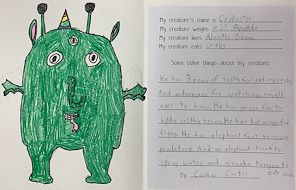 My creature's name is
My creature weighs 455 Pounds
My creature lives Atlantic Ocean
My creature eats crabs
Some other things about my creature:
He has 3 rows of teeth for eating crabs
And antennas for watching small
ears to hear. He has green fur to
hide in the trees. He has bat wings for
flying. He has elephant feet to scare
predators. And an elephant trunk to
spray water and a snake tongue to
By eat crabs